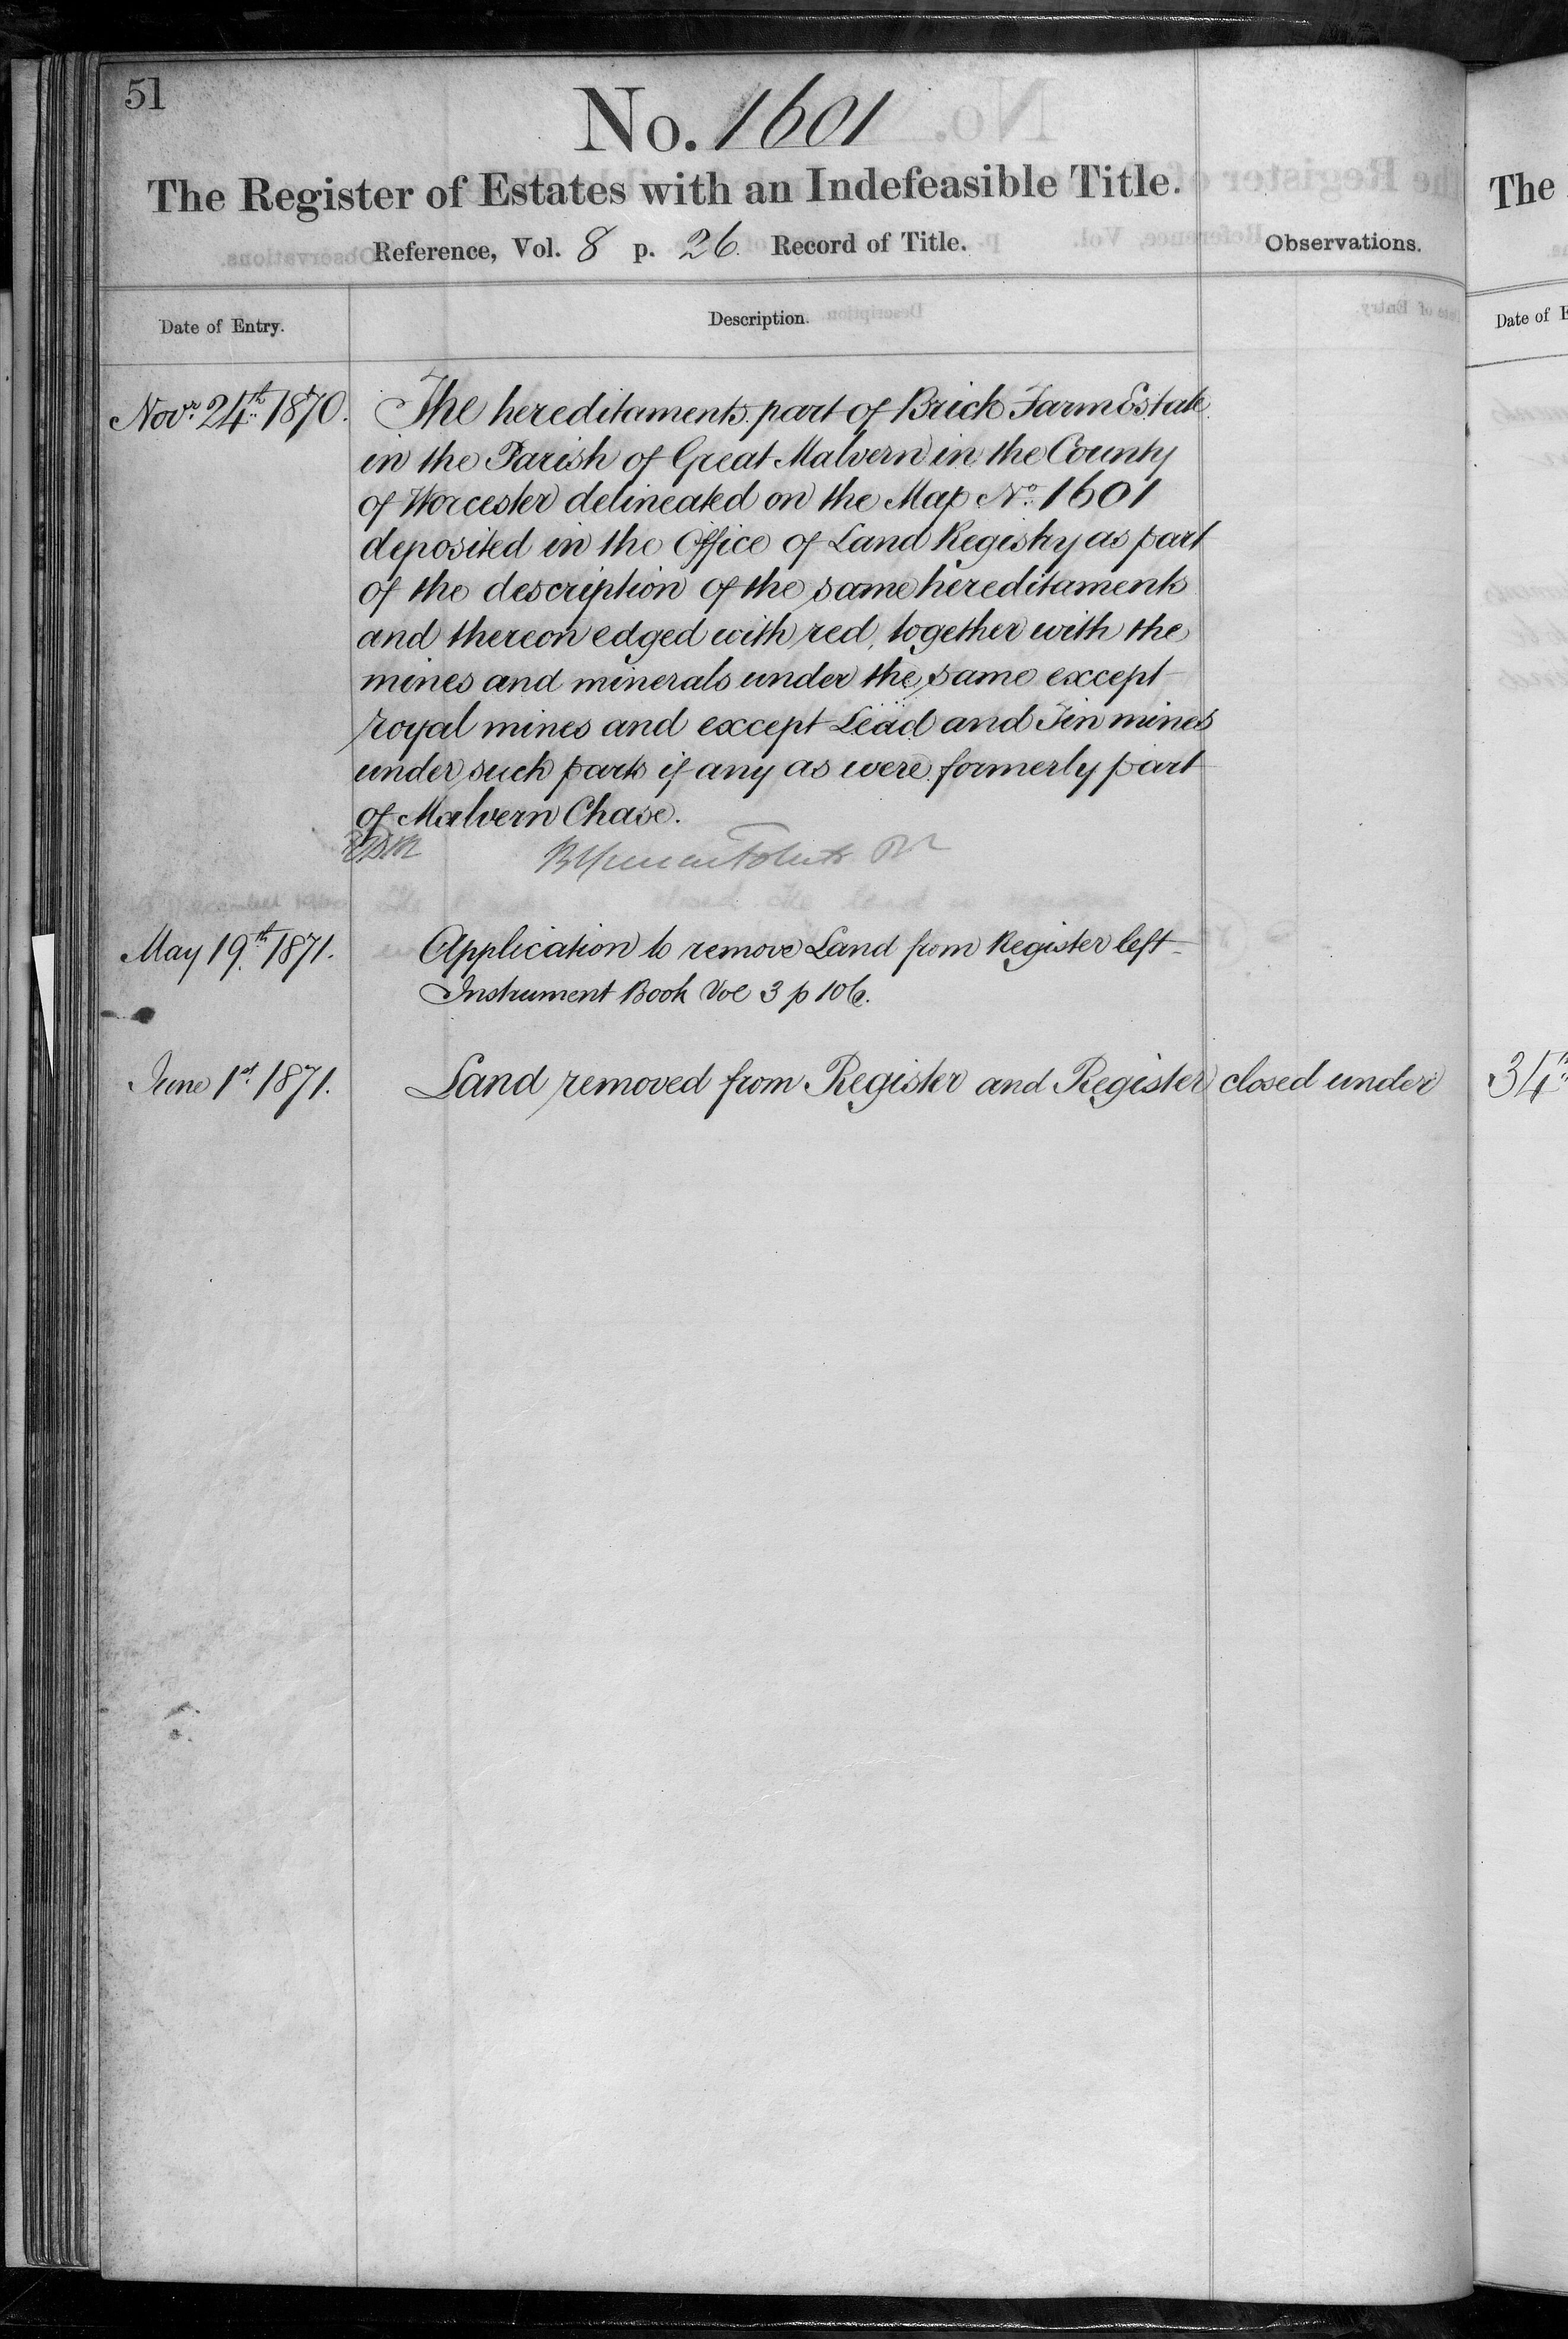 51
No. 1601
The Register of Estates with an Indefeasible Title.
Reference, Vol. 8 p. 26. Record of Title.
Observations.
Date of Entry.
Description.
Novr. 24th 1870.
The hereditaments part of Brick Farm Estate
in the Parish of Great Malvern in the County
of Worcester delineated on the Map No. 1601
deposited in the Office of Land Registry as part
of the description of the same hereditaments
and thereon edged with red, together with the
mines and minerals under the same except
royal mines and except Lead and Tin mines
under such parts if any as were formerly part
of Malvern Chase.
May 19th 1871.
Application to remove Land from Register left
Instrument Book Vol 3 p 106.
June 1st 1871.
Land removed from Register and Register closed under 34th
The
Date of E